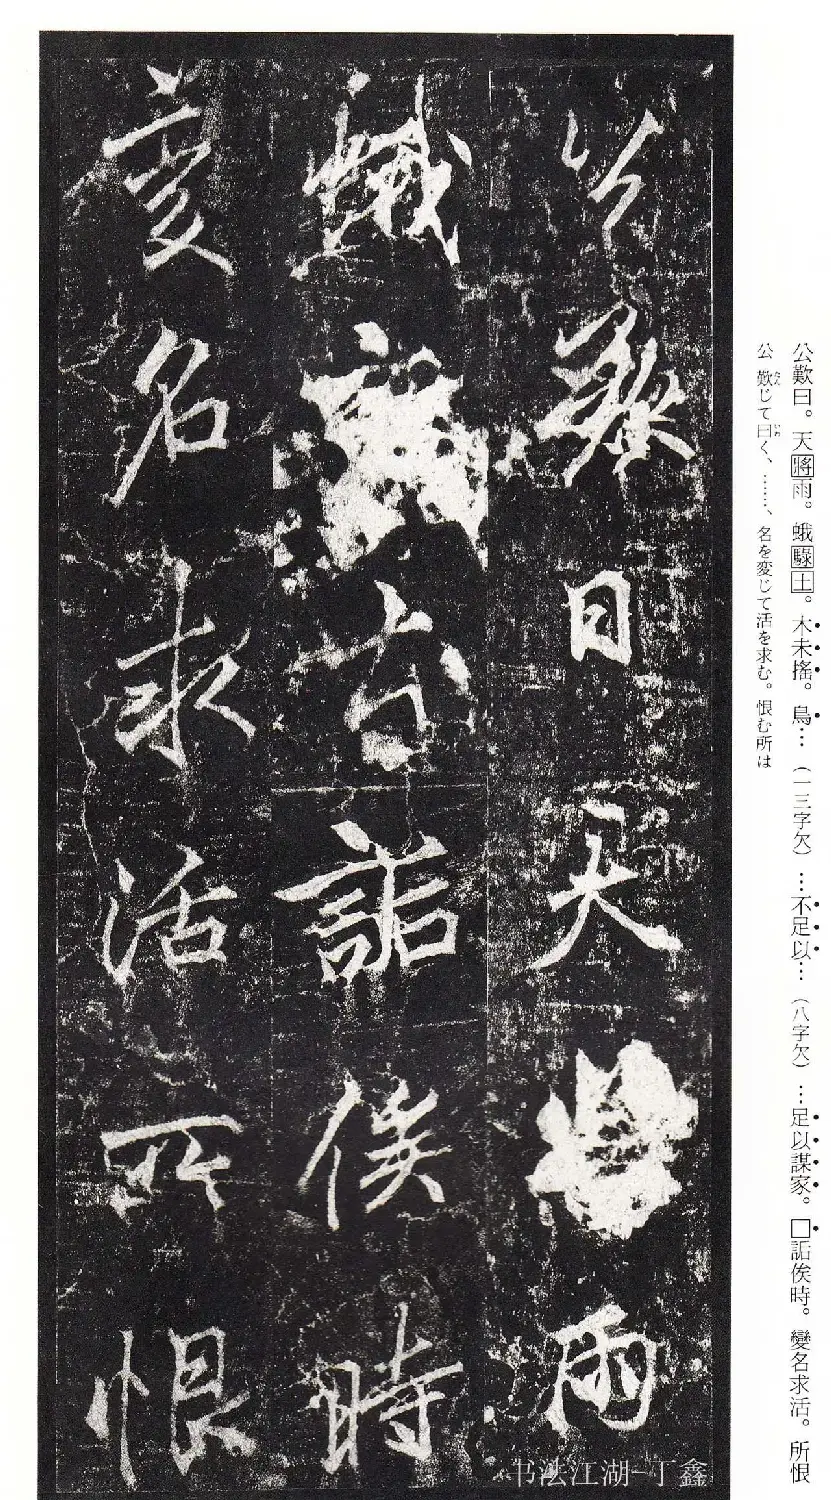 公歎曰。天將雨。蛾驟土。木未搖。烏…（一三字欠）…不足以…（八字欠）…足以謀家。□詬俟時。變名求活。所恨
公歎じて曰く、……、名を変じて活を求む。恨む所は
公歎曰天雨
蛾詬俟時
變名求活所恨
书法江湖-丁鑫